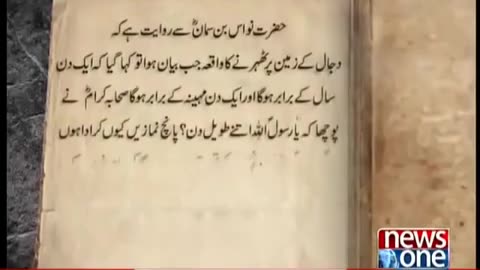 حضرت نواس بن سمانؓ سے روایت ہے کہ
دجال کے زمین پر ٹھہرنے کا واقعہ جب بیان ہوا تو کہا گیا کہ ایک دن
سال کے برابر ہوگا اور ایک دن مہینہ کے برابر ہوگا صحابہ کرامؓ نے
پوچھا کہ یا رسولؐ اللہ اتنے طویل دن؟ پانچ نمازیں کیوں کر ادا ہوں
news
one